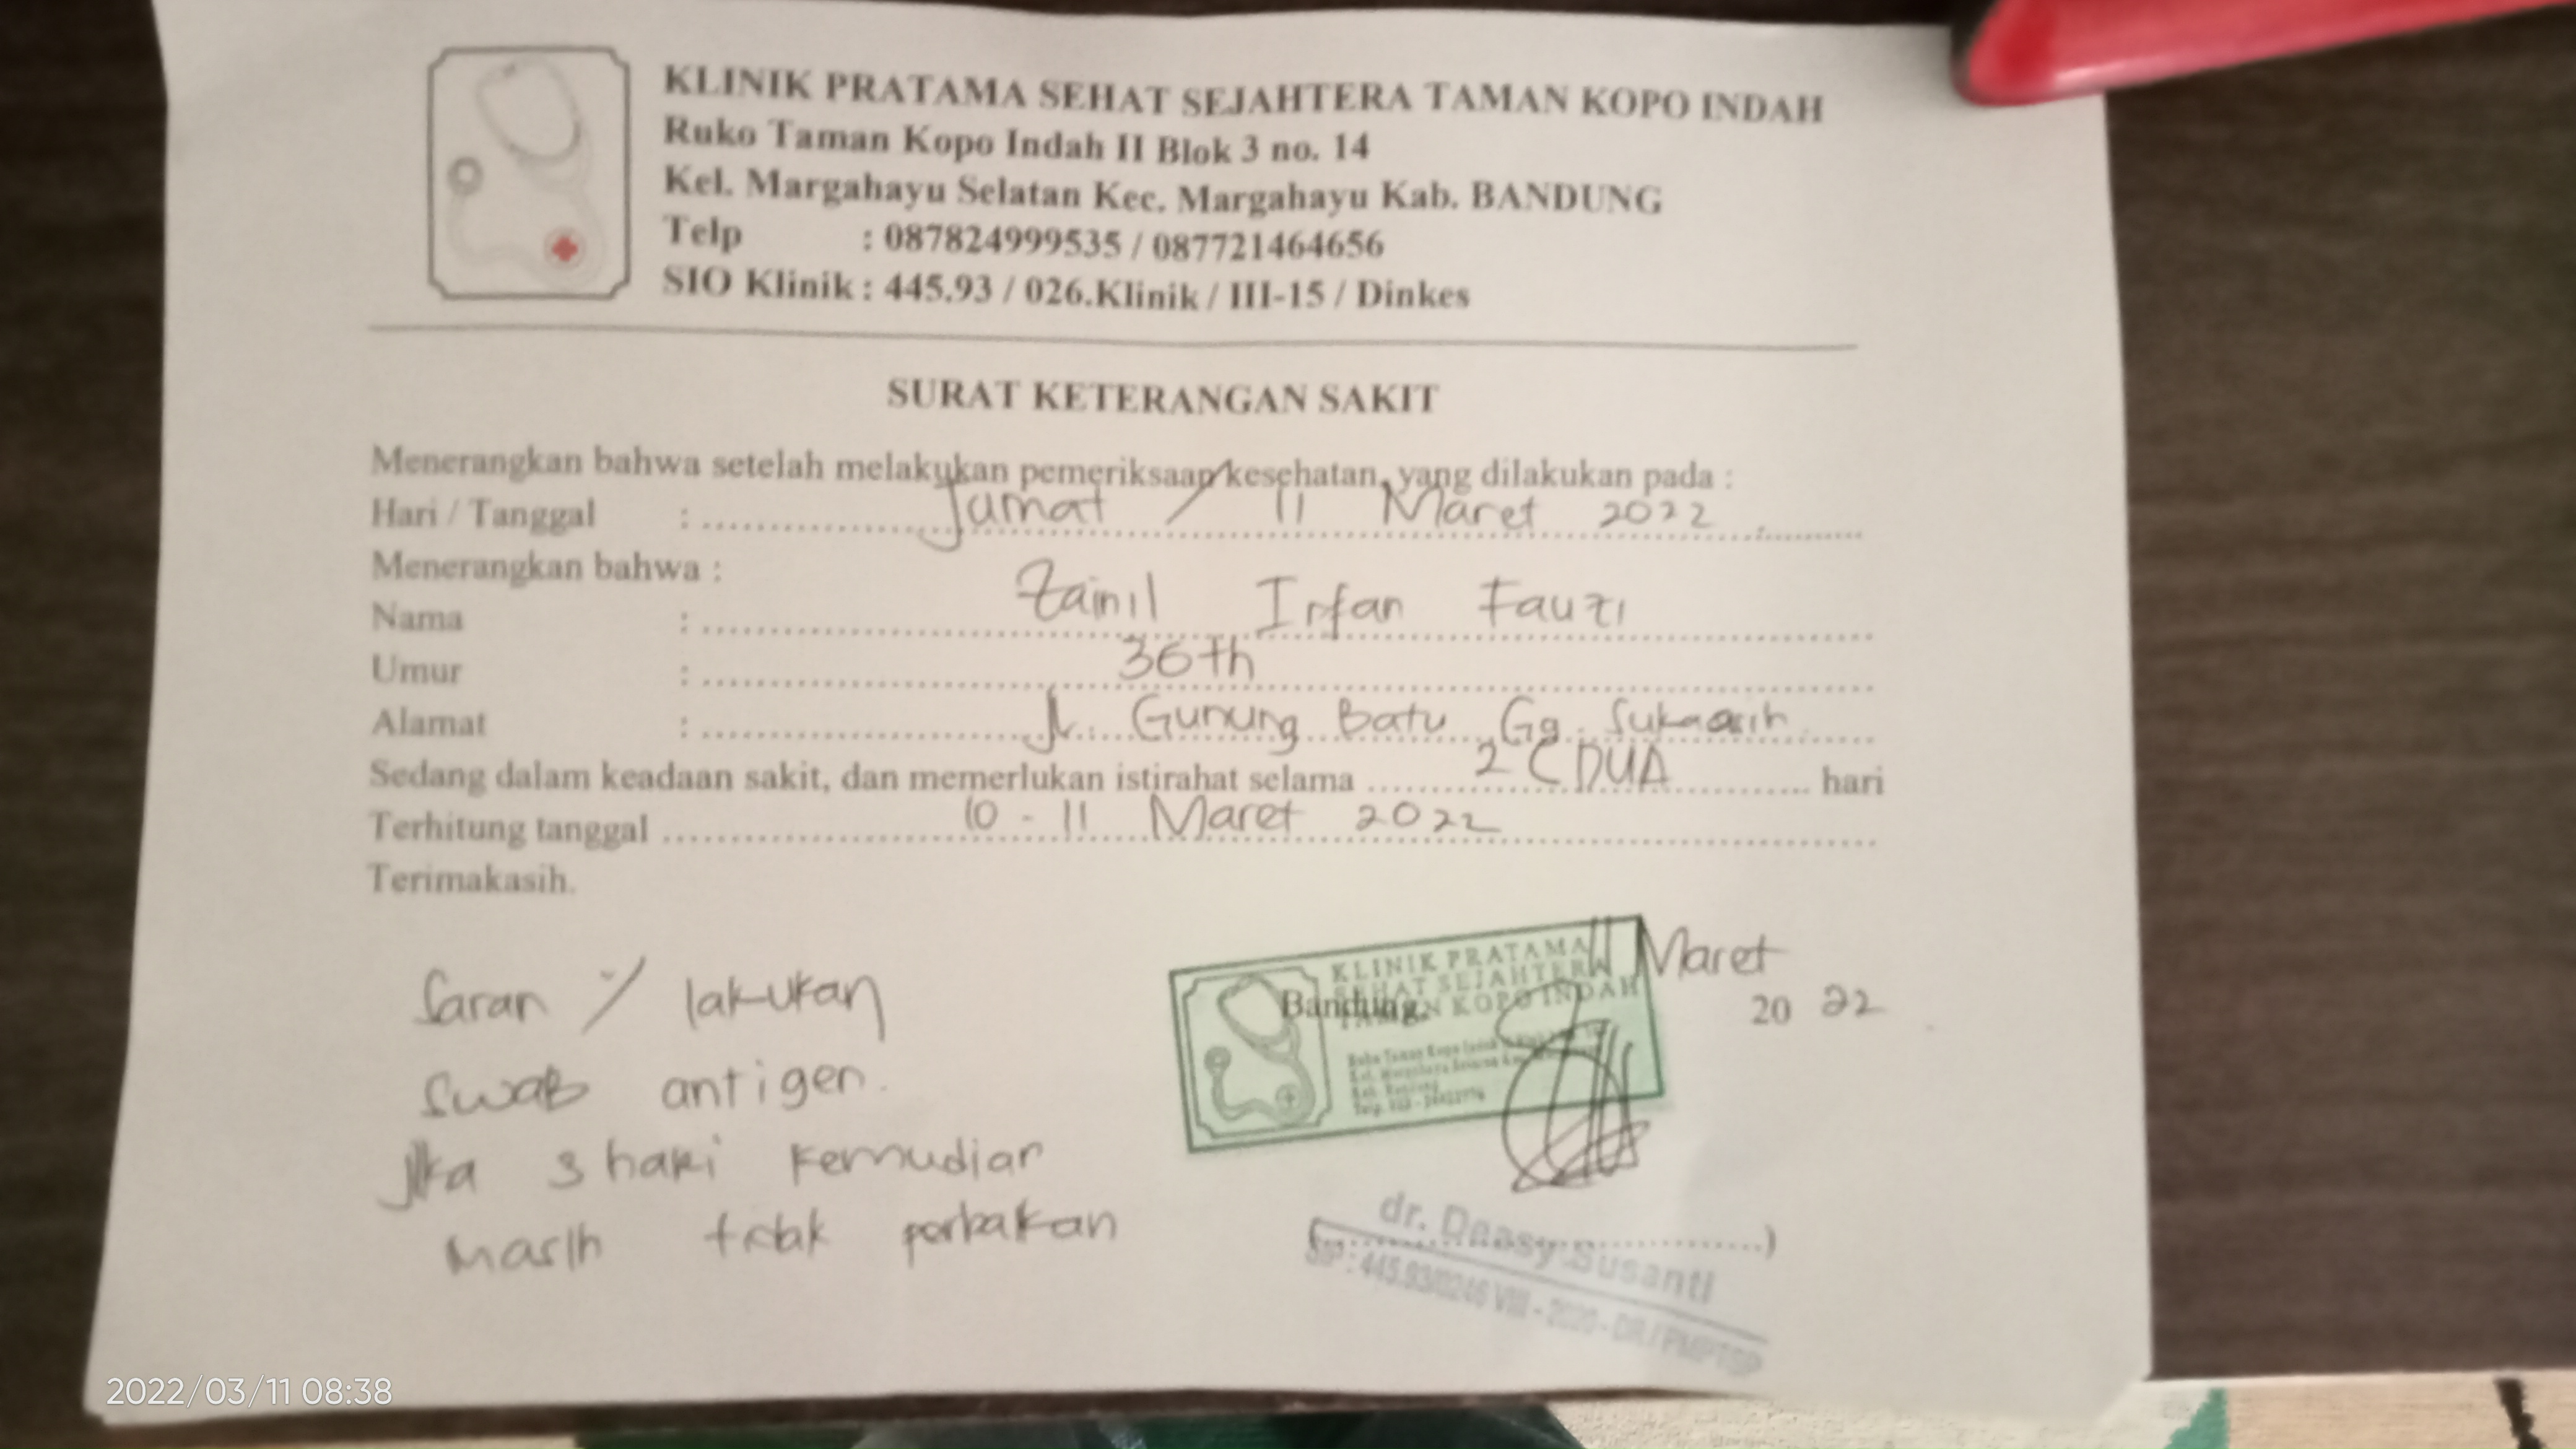 KLINIK PRATAMA SEHAT SEJAHTERA TAMAN KOPO INDAH
Ruko Taman Kopo Indah II Blok 3 no. 14
Kel. Margahayu Selatan Kec. Margahayu Kab. BANDUNG
Telp : 087824999535 / 087721464656
SIO Klinik : 445.93 / 026.Klinik / III-15 / Dinkes
SURAT KETERANGAN SAKIT
Menerangkan bahwa setelah melakukan pemeriksaan kesehatan, yang dilakukan pada :
Hari / Tanggal : Jumat / 11 Maret 2022
Menerangkan bahwa :
Nama : Zainil Irfan Fauzi
Umur : 36 th
Alamat : Jl. Gunung Batu Gg. Sukaasih
Sedang dalam keadaan sakit, dan memerlukan istirahat selama 2 ( DUA hari
Terhitung tanggal 10 - 11 Maret 2022
Terimakasih.
Saran / lakukan
swab antigen.
Jika 3 hari kemudian
masih tidak
KLINIK PRATAMA
SEHAT SEJAHTERA
TAMAN KOPO INDAH
Bandung, 11 Maret 2022
dr. Deasy Susanti
SIP : 445.93/0246 VIII - 2020 - DR / PMPTSP
2022/03/11 08:38